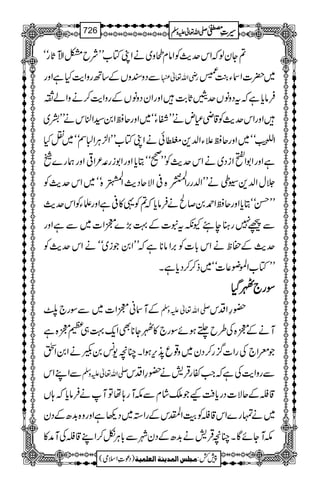 سیرتِ مصطفیٰ صلی اللہ تعالیٰ علیہ وسلم 726
تم جان لو کہ اس حدیث کو امام طحاوی نے اپنی کتاب ’’شرح مشکل الآثار‘‘
میں حضرت اسماء بنت عمیس رضی اللہ تعالیٰ عنہا سے دو سندوں کے ساتھ روایت کیا ہے اور
فرمایا ہے کہ یہ دونوں حدیثیں ثابت ہیں اور ان دونوں کے روایت کرنے والے ثقہ
ہیں اور اس حدیث کو قاضی عیاض نے ’’شفاء‘‘ میں اور حافظ ابن سید الناس نے ’’بشریٰ
اللبیب‘‘ میں اور حافظ علاء الدین مغلطائی نے اپنی کتاب ’’الزہر الباسم‘‘ میں نقل کیا
ہے اور ابو الفتح ازدی نے اس حدیث کو ’’صحیح‘‘ بتایا اور ابوزرعہ عراقی اور ہمارے شیخ
جلال الدین سیوطی نے ’’الدرر المنتثرہ فی الاحادیث المشتہرہ‘‘ میں اس حدیث کو
’’حسن‘‘ بتایا اور حافظ احمد بن صالح نے فرمایا کہ تم کو یہی کافی ہے اور علماء کو اس حدیث
سے پیچھے نہیں رہنا چاہیے کیونکہ یہ نبوت کے بہت بڑے معجزات میں سے ہے اور
حدیث کے حفاظ نے اس بات کو برا مانا ہے کہ ’’ابن جوزی‘‘ نے اس حدیث کو
’’کتاب الموضوعات‘‘ میں ذکر کر دیا ہے۔
سورج ٹھہر گیا
حضور اقدس صلی اللہ تعالیٰ علیہ وسلم کے آسمانی معجزات میں سے سورج پلٹ
آنے کے معجزہ کی طرح چلتے ہوئے سورج کا ٹھہر جانا بھی ایک بہت ہی عظیم معجزہ ہے
جو معراج کی رات گزر کر دن میں وقوع پذیر ہوا۔ چنانچہ یونس بن بکیر نے ابن اسحٰق
سے روایت کی ہے کہ جب کفار قریش نے حضور اقدس صلی اللہ تعالیٰ علیہ وسلم سے اپنے اس
قافلہ کے حالات دریافت کیے جو ملک شام سے مکہ آ رہا تھا تو آپ نے فرمایا کہ ہاں
میں نے تمہارے اس قافلہ کو بیت المقدس کے راستہ میں دیکھا ہے اور وہ بدھ کے دن
مکہ آ جائے گا۔ چنانچہ قریش نے بدھ کے دن شہر سے باہر نکل کر اپنے قافلہ کی آمد کا
پیش کش: مجلس المدینۃ العلمیۃ (دعوتِ اسلامی)